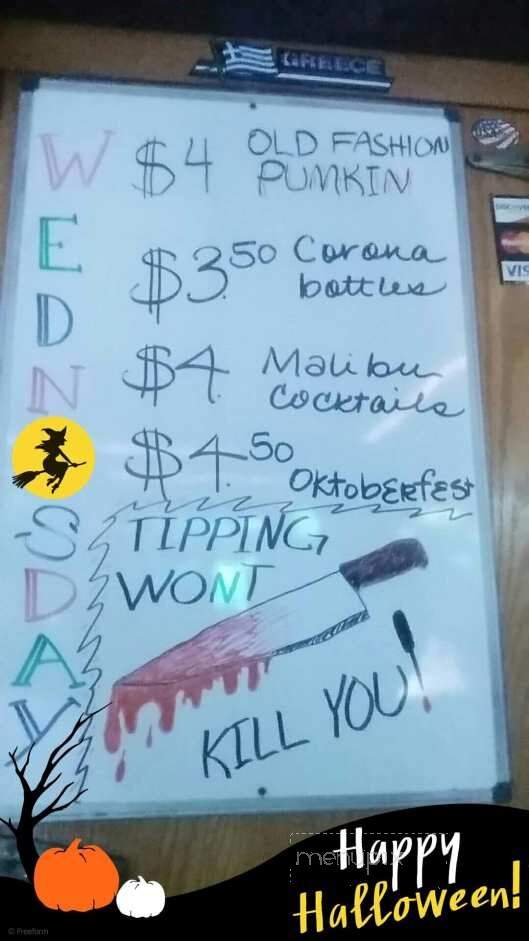 GREECE
WEDNSDAY
$4 OLD FASHION
PUMKIN
$3.50 Corona
bottles
$4 Malibu
Cocktails
$4.50
Oktoberfest
TIPPING
WONT
KILL YOU!
DISCOVER
VIS
menupix
Happy
Halloween!
© Freeform